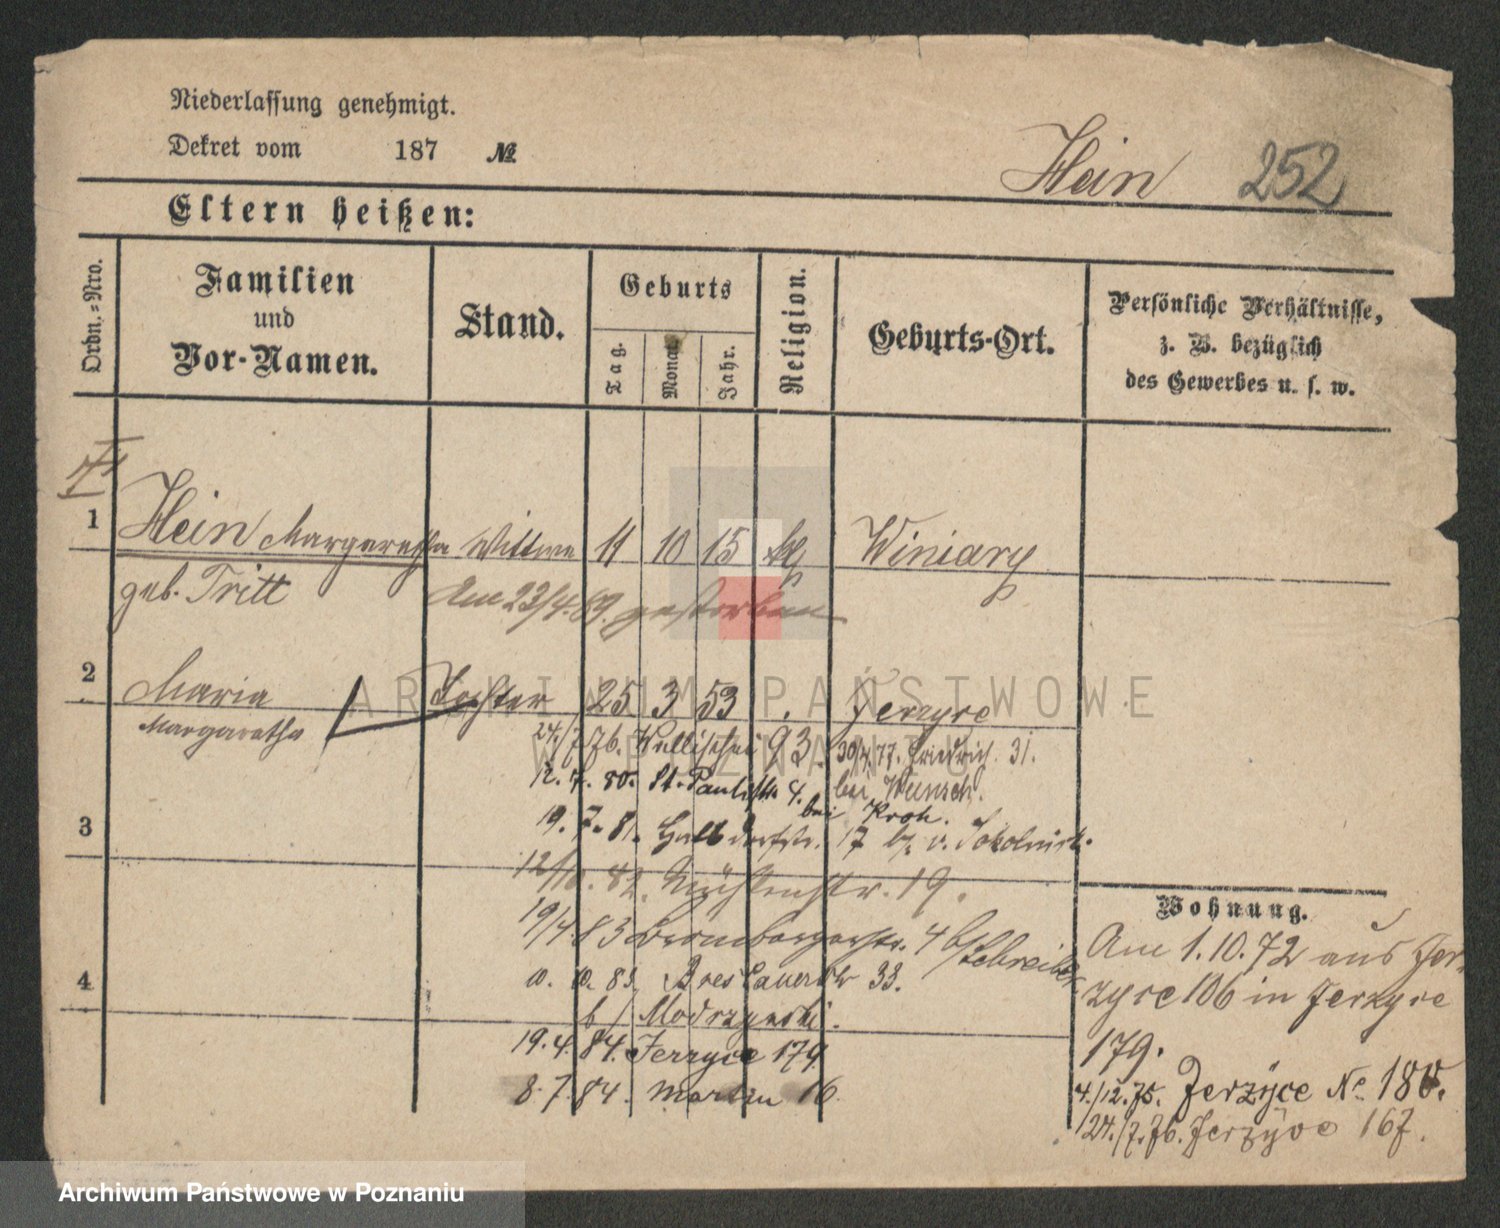 Niederlassung genehmigt.
Dekret vom 187 №
Hein 252
Eltern heißen:
Ordn.-Nro.
Familien
und
Vor-Namen.
Stand.
Geburts
Tag.
Monat
Jahr.
Religion.
Geburts-Ort.
Persönliche Verhältnisse,
z. B. bezüglich
des Gewerbes u. s. w.
1 Hein Margaretha Wittwe 11 10 15 Winiary
geb. Tritt Am 23/4.89. gestorben
2 Maria Tochter 25 3 53 Jerzyce
Margaretha
24./7.76. Wallischei 93. Friedrich. 31.
12. 7. 80. St. Paulistr 4. bei Wunsch.
bei Kroh.
3
19. 7. 81. Halbdorfstr. 17 b. v. Sokolnick.
12/10. 82. 19.
19/4 83 Brombergerstr. 4 b/Schreiber
4
10. 83. Breslauerstr 33.
b/ Modrzynski.
19. 4. 84. Jerzyce 179
8. 7. 84. Martin 16
Wohnung.
Am 1.10.72 aus Jer-
zyce 106 in Jerzyce
179.
4./12.75. Jerzyce No 180.
124./7.76. Jerzyce 167.
ARCHIWUM PAŃSTWOWE
W POZNANIU
Archiwum Państwowe w Poznaniu